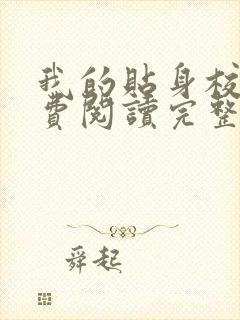 我的貼身校
費閱讀完整
舜起